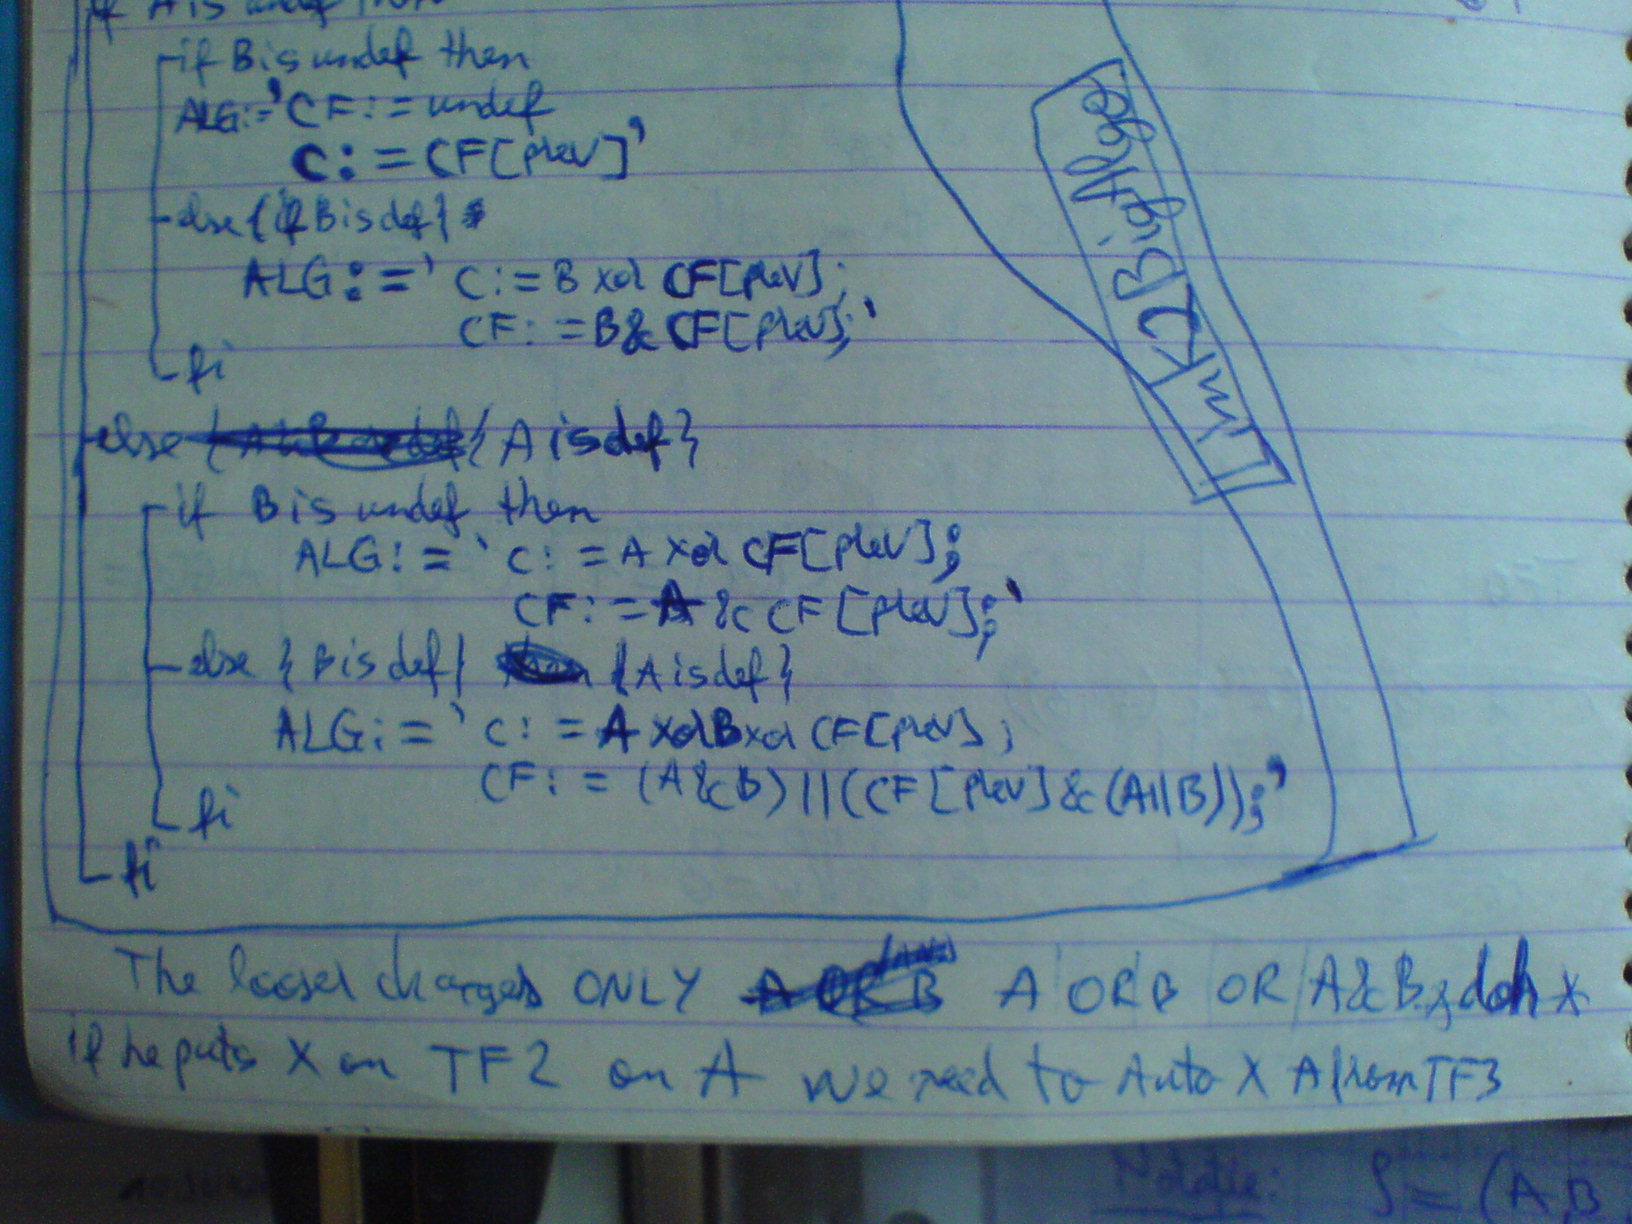 if A is undef then
if B is undef then
ALG:='CF:=undef
C:=CF[prev]'
else{if B is def}
ALG:=' C:=B xor CF[prev];
CF:=B& CF[prev];'
fi
else {A is def}
if B is undef then
ALG:=' C:=A xor CF[prev];
CF:=A & CF[prev];'
else {B is def} {A is def}
ALG:=' C:=A xor B xor CF[prev];
CF:=(A&B)||(CF[prev]&(A||B));'
fi
fi
The changes ONLY A OR B OR A&B
if he puts X on TF2 on A we need to Auto X A from TF3
Notatie: S=(A,B